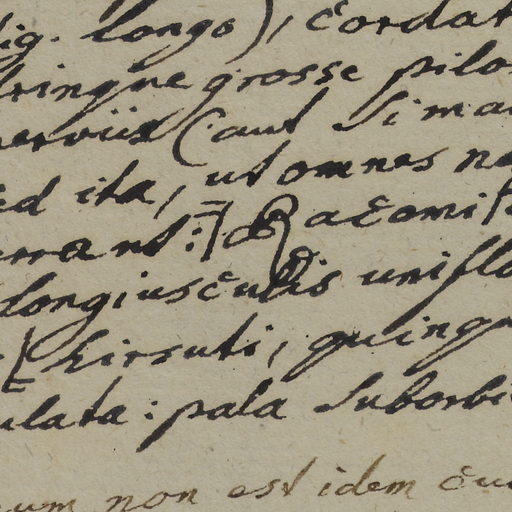 ig. longo), cordat
tringue grosse pilo
nerviis (aut si ma
ed ita, ut omnes ne
rrant:] Racemi
longiusculis uniflo
hirsuti, quinqu
ulata: pala suborbi
um non est idem cu